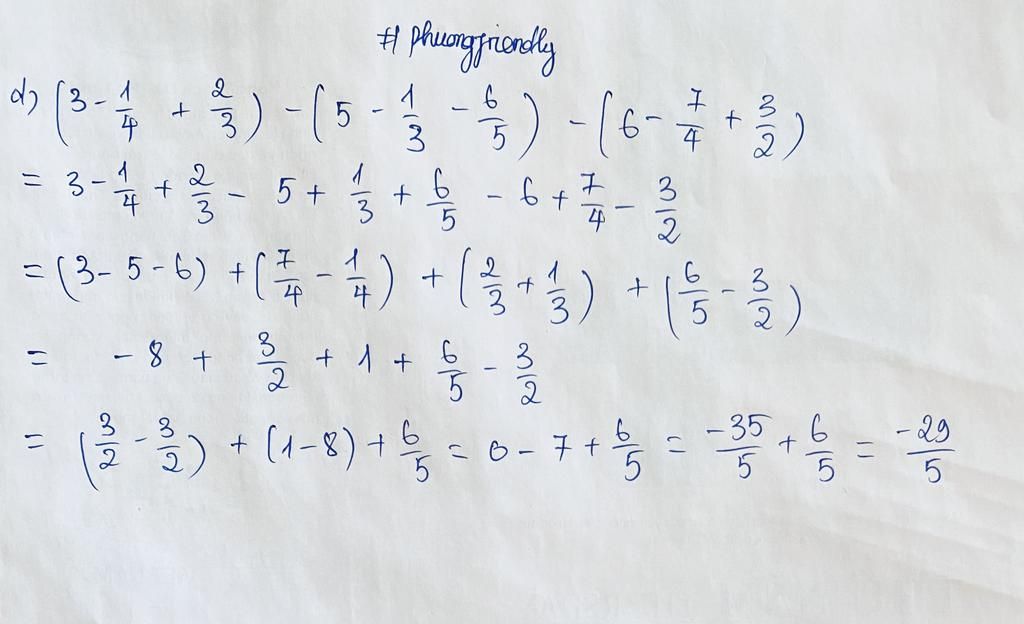 # phuongfriendly
d) (3 - 1/4 + 2/3) - (5 - 1/3 - 6/5) - (6 - 7/4 + 3/2)
= 3 - 1/4 + 2/3 - 5 + 1/3 + 6/5 - 6 + 7/4 - 3/2
= (3 - 5 - 6) + (7/4 - 1/4) + (2/3 + 1/3) + (6/5 - 3/2)
= - 8 + 3/2 + 1 + 6/5 - 3/2
= (3/2 - 3/2) + (1 - 8) + 6/5 = 0 - 7 + 6/5 = -35/5 + 6/5 = -29/5